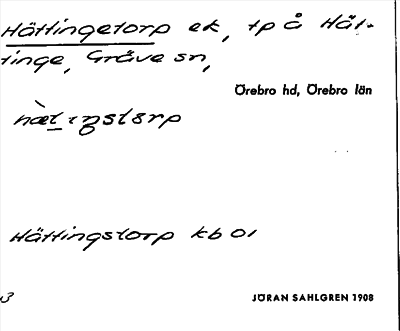 Hättingetorp ek, tp å Hät-
tinge, Gräve sn,
Örebro hd, Örebro län
Hättingstorp kb 01
3
JÖRAN SAHLGREN 1908